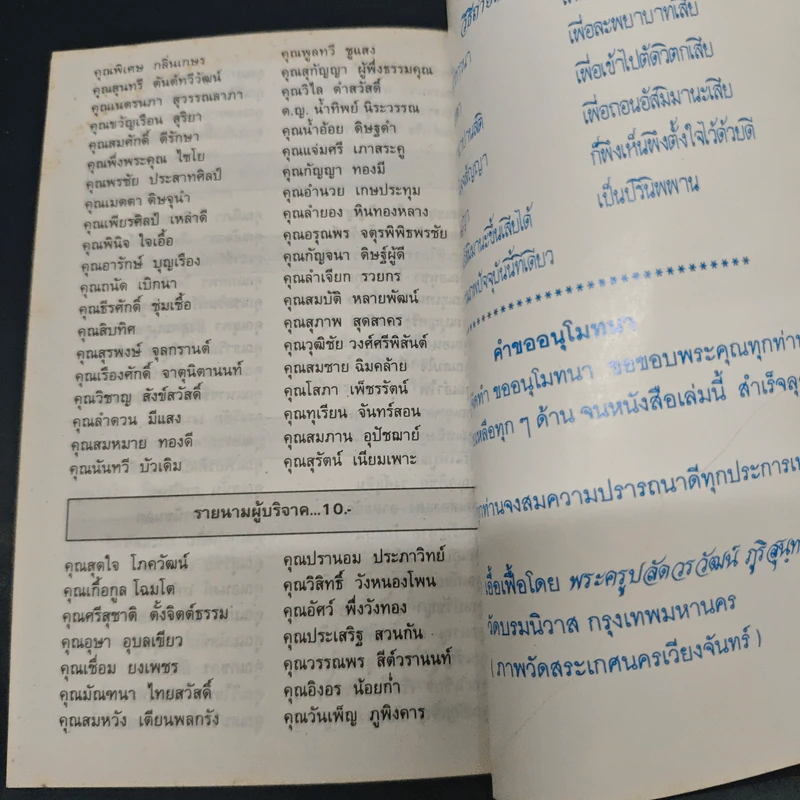 คุณพิเศษ กลิ่นเกษร
คุณสุนทรี ตันต์ทวีวัฒน์
คุณเนตรนภา สุวรรณลาภา
คุณขวัญเรือน สุริยา
คุณสมศักดิ์ ดีรักษา
คุณพึ่งพระคุณ ไชโย
คุณพรชัย ประสาทศิลป์
คุณเมตตา ดิษฐนำ
คุณเพียรศิลป์ เหล่าดี
คุณพินิจ ใจเอื้อ
คุณอารักษ์ บุญเรือง
คุณถนัด เบิกนา
คุณธีรศักดิ์ ชุ่มเชื้อ
คุณสิบทิศ
คุณสุรพงษ์ จุลกรานต์
คุณเรืองศักดิ์ จาตุนิตานนท์
คุณวิชาญ สังข์สวัสดิ์
คุณลำดวน มีแสง
คุณสมหมาย ทองดี
คุณนันทวี บัวเดิม
คุณพูลทวี ชูแสง
คุณสุกัญญา ผู้พึ่งธรรมคุณ
คุณวิไล ดำสวัสดิ์
ด.ญ. น้ำทิพย์ นิระวรรณ
คุณน้ำอ้อย ดิษฐดำ
คุณแจ่มศรี เภาสระคู
คุณกัญญา ทองมี
คุณอำนวย เกษประทุม
คุณลำยอง หินทองหลาง
คุณอรุณพร จตุรพิพิธพรชัย
คุณกัญจนา ดิษฐ์ผู้ดี
คุณลำเจียก รวยกร
คุณสมบัติ หลายพัฒน์
คุณสุภาพ สุดสาคร
คุณวุฒิชัย วงศ์ศรีพิสันต์
คุณสมชาย ฉิมคล้าย
คุณโสภา เพ็ชรรัตน์
คุณทุเรียน จันทร์สอน
คุณสมภาน อุปัชฌาย์
คุณสุรัตน์ เนียมเพาะ
รายนามผู้บริจาค...10.-
คุณสุดใจ โภควัฒน์
คุณเกื้อกูล โฉมโต
คุณศรีสุชาติ ตั้งจิตต์ธรรม
คุณอุษา อุบลเขียว
คุณเชื่อม ยงเพชร
คุณมัณฑนา ไทยสวัสดิ์
คุณสมหวัง เตียนพลกรัง
คุณปรานอม ประภาวิทย์
คุณวิสิทธิ์ วังหนองโพน
คุณอัศว์ พึ่งวังทอง
คุณประเสริฐ สวนกัน
คุณวรรณพร สีต์วรานนท์
คุณอิงอร น้อยก่ำ
คุณวันเพ็ญ ภูพิงคาร
เพื่อละพยาบาทเสีย
เพื่อเข้าไปตัดวิตกเสีย
เพื่อถอนอัสมิมานะเสีย
ก็พึงเห็นพึงตั้งใจไว้ด้วยดี
เป็นปรินิพพาน
มานะขึ้นเสียได้
ภาพปัจจุบันนี้ทีเดียว
******************************
คำขออนุโมทนา
ขออนุโมทนา ขอขอบพระคุณทุกท่าน
เหลือทุก ๆ ด้าน จนหนังสือเล่มนี้ สำเร็จลุ
ท่านจงสมความปรารถนาดีทุกประการเท
เอื้อเฟื้อโดย พระครูปลัดวรวัฒน์ ภูริสุนฺท
วัดบรมนิวาส กรุงเทพมหานคร
(ภาพวัดสระเกศนครเวียงจันทร์)